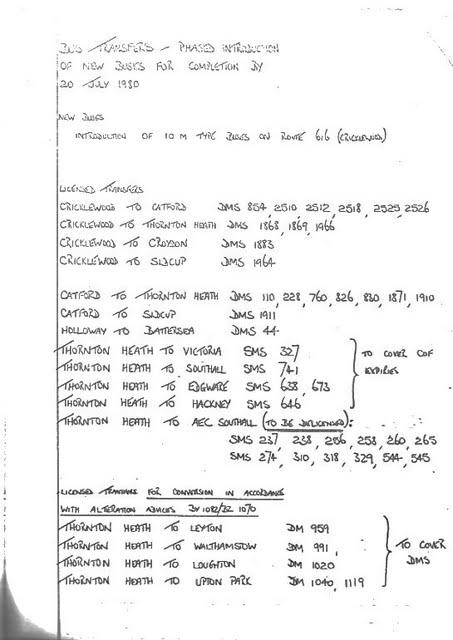 BUS TRANSFERS - PHASED INTRODUCTION
OF NEW BUSES FOR COMPLETION BY
20 JULY 1980
NEW BUSES
INTRODUCTION OF 10 M TYPE BUSES ON ROUTE 616 (CRICKLEWOOD)
LICENSED TRANSFERS
CRICKLEWOOD TO CATFORD DMS 854, 2510, 2512, 2518, 2525, 2526
CRICKLEWOOD TO THORNTON HEATH DMS 1868, 1869, 1966
CRICKLEWOOD TO CROYDON DMS 1883
CRICKLEWOOD TO SIDCUP DMS 1964
CATFORD TO THORNTON HEATH DMS 110, 228, 760, 826, 830, 1871, 1910
CATFORD TO SIDCUP DMS 1911
HOLLOWAY TO BATTERSEA DMS 44
THORNTON HEATH TO VICTORIA SMS 327
THORNTON HEATH TO SOUTHALL SMS 741
THORNTON HEATH TO EDGWARE SMS 638, 673
THORNTON HEATH TO HACKNEY SMS 646
TO COVER COF
EXPIRIES
THORNTON HEATH TO AEC SOUTHALL (TO BE DELICENSED):
SMS 237, 238, 256, 258, 260, 265
SMS 274, 310, 318, 329, 544, 545
LICENSED TRANSFERS FOR CONVERSION IN ACCORDANCE
WITH ALTERATION ADVICES BY 1082/BZ 1070
THORNTON HEATH TO LEYTON DM 959
THORNTON HEATH TO WALTHAMSTOW DM 991,
THORNTON HEATH TO LOUGHTON DM 1020
THORNTON HEATH TO UPTON PARK DM 1040, 1119
TO COVER
DMS